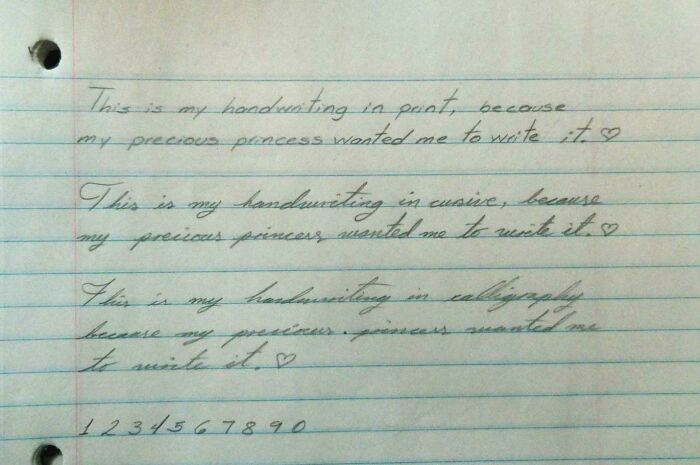 This is my handwriting in print, because
my precious princess wanted me to write it. ♡
This is my handwriting in cursive, because
my precious princess wanted me to write it. ♡
This is my handwriting in calligraphy
because my precious. princess wanted me
to write it. ♡
1 2 3 4 5 6 7 8 9 0